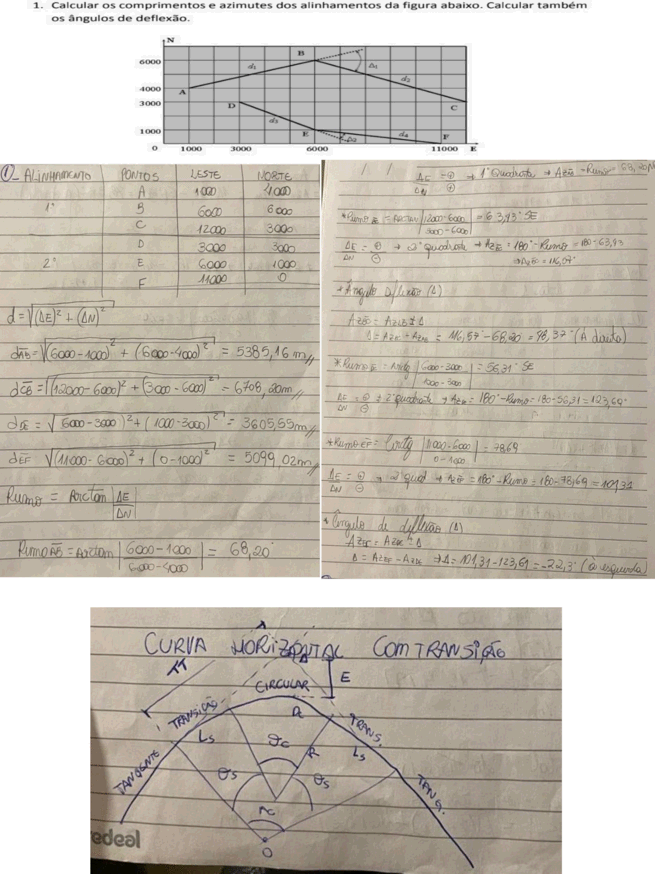 1. Calcular os comprimentos e azimutes dos alinhamentos da figura abaixo. Calcular também
os ângulos de deflexão.
N
6000
4000
3000
1000
0
1000
3000
6000
11000
E
A
B
C
D
E
F
d₁
d₂
d₃
d₄
Δ₁
Δ₂
① ALINHAMENTO PONTOS LESTE NORTE
A 1000 4000
1° B 6000 6000
C 12000 3000
D 3000 3000
2° E 6000 1000
F 11000 0
d = √(ΔE)² + (ΔN)²
dAB = √(6000-1000)² + (6000-4000)² = 5385,16 m
dCB = √(12000-6000)² + (3000-6000)² = 6708,20m
dDE = √(6000-3000)² + (1000-3000)² = 3605,55m
dEF = √(11000-6000)² + (0-1000)² = 5099,02m
Rumo = Arctan |ΔE/ΔN|
Rumo AB = Arctan |6000-1000/6000-4000| = 68,20°
/ / ΔE/ΔN = ⊕/⊕ → 1° Quadrante → Az = Rumo 68,20
= Arctan |12000-6000/3000-6000| = 63,43° SE
ΔE/ΔN = ⊕/⊖ → 2° quadrante → Az = 180° - Rumo = 180 - 63,43
= 116,57°
* Ângulo Deflexão (Δ)
Δ = Az - Az = 116,57 - 68,20 = 48,37° (À direita)
* Rumo = Arctg |6000-3000/1000-3000| = 56,31° SE
ΔE/ΔN = ⊕/⊖ → 2° quadrante → Az = 180° - Rumo = 180 - 56,31 = 123,69°
* Rumo EF = |11000-6000/0-1000| = 78,69
ΔE/ΔN = ⊕/⊖ → 2° quad → Az = 180° - Rumo = 180 - 78,69 = 101,31
* Ângulo de deflexão (Δ)
Δ = AzEF - AzDE ⇒ Δ = 101,31 - 123,61 = -22,3° (à esquerda)
CURVA HORIZONTAL COM TRANSIÇÃO
E
CIRCULAR
TRANSIÇÃO
TRANS.
Ls
θc
R
Ls
TANGENTE
θs
θs
TANG.
O
edeal